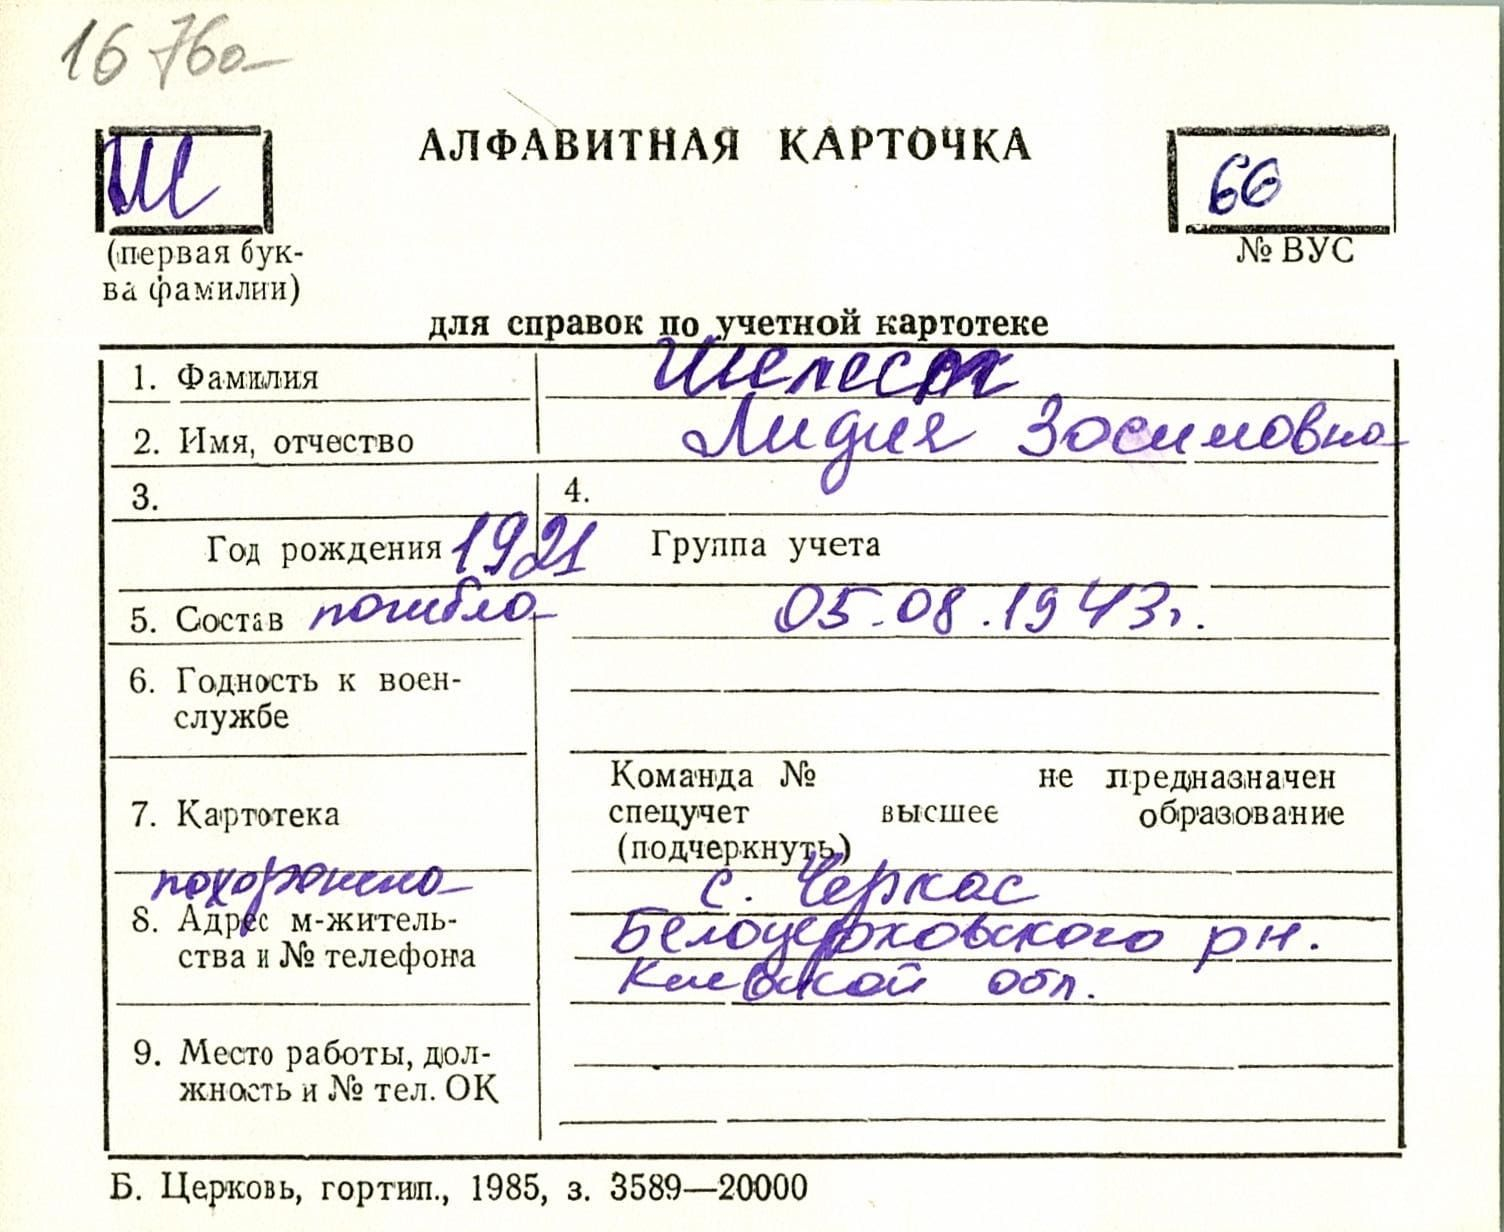 16 760
Ш
АЛФАВИТНАЯ КАРТОЧКА
66
(первая бук-
ва фамилии)
№ ВУС
для справок по учетной картотеке
1. Фамилия Шелест
2. Имя, отчество Лидия Зосимовна
3. 4.
Год рождения 1921 Группа учета
5. Состав погибла 05.08.1943г.
6. Годность к воен-
службе
Команда № не предназначен
7. Картотека спецучет высшее образование
(подчеркнуть)
похоронена с. Черкас
8. Адрес м-житель- Белоцерковского рн.
ства и № телефона Киевской обл.
9. Место работы, дол-
жность и № тел. ОК
Б. Церковь, гортип., 1985, з. 3589—20000